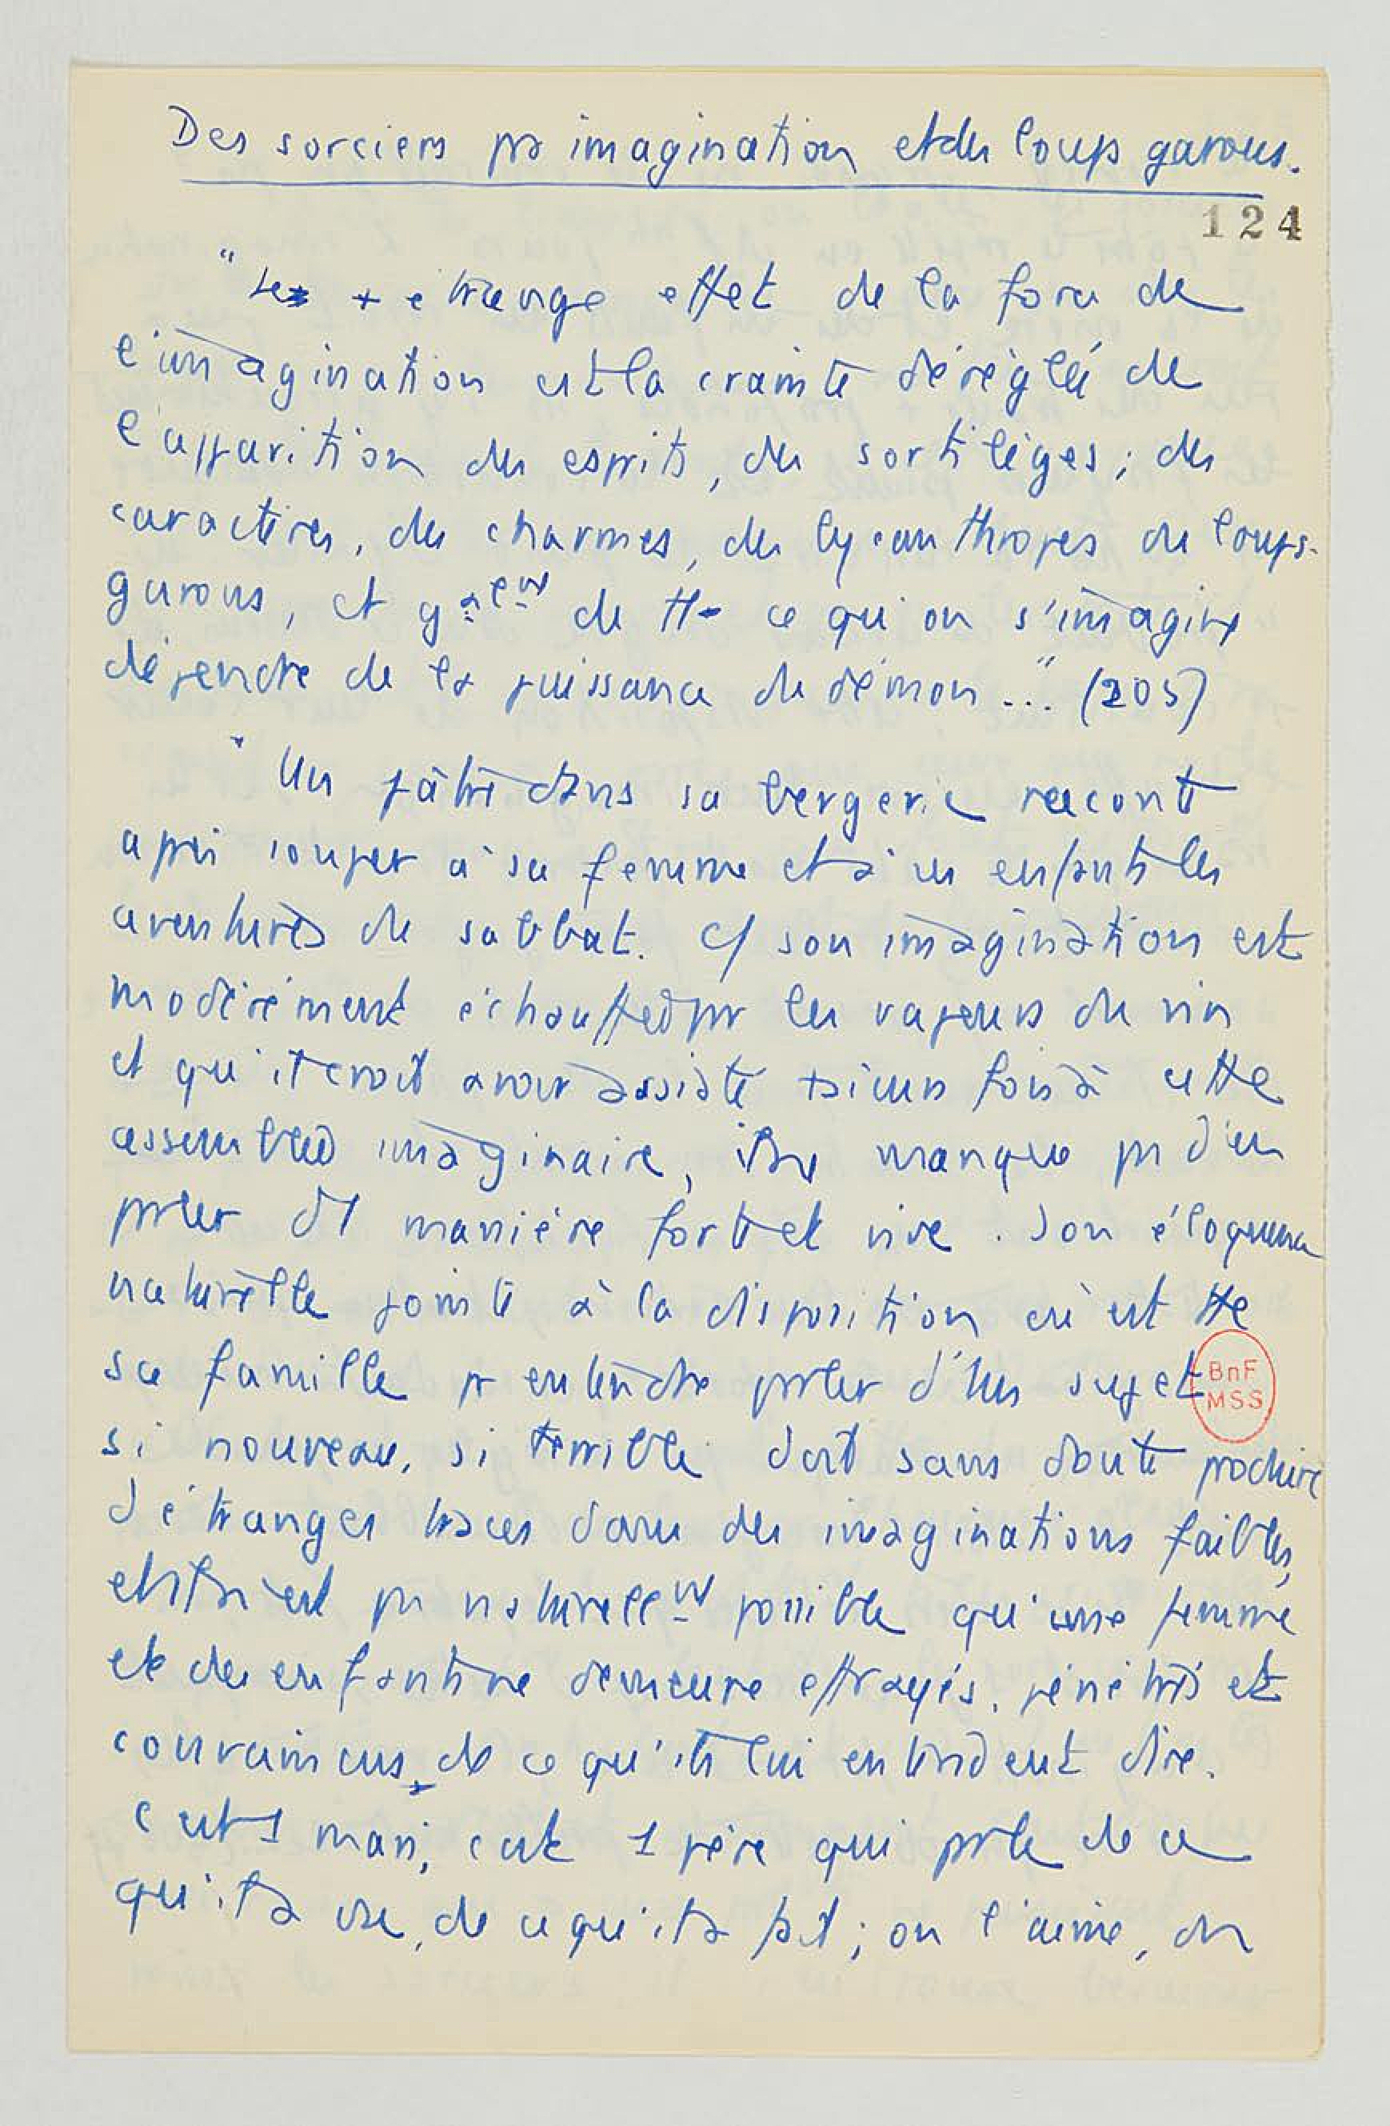 Des sorciers pr imagination et des loups garous.
124
"Le + étrange effet de la force de
l'imagination est la crainte déréglée de
l'apparition des esprits, des sortilèges, des
caractères, des charmes, des lycanthropes ou loups-
garous, et gnalemt de tt ce qui on s'imagine
dépendre de la puissance du démon..." (205)
"Un pâtre dans sa bergerie raconte
après souper à sa femme et à ses enfants les
aventures du sabbat. C/ son imagination est
modérément échauffée pr les vapeurs du vin
et qu'il croit avoir assisté +sieurs fois à cette
assemblée imaginaire, il ne manque pas d'en
prler d'1 manière forte et vive. Son éloquence
naturelle jointe à la disposition où est tte
sa famille pr entendre prler d'un sujet
BnF
MSS
si nouveau, si terrible doit sans doute produire
d'étranges traces dans des imaginations faibles,
et il n'est pas naturellemt possible qu'une femme
et des enfants ne demeure effrayés, pénétrés et
convaincus de ce qu'ils lui entendent dire.
C'est 1 mari, c'est 1 père qui prle de ce
qu'il a vu, de ce qu'il a fait ; on l'aime, on